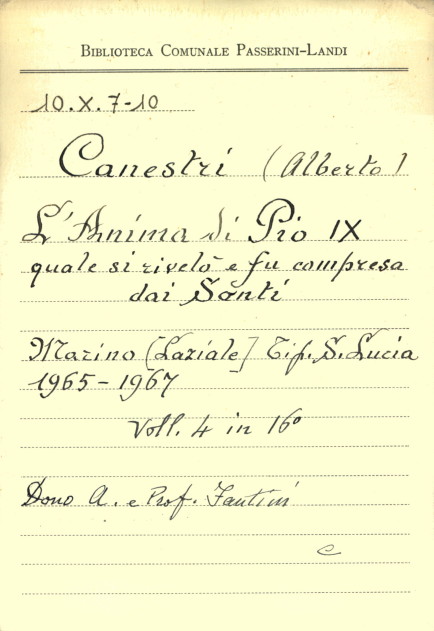 BIBLIOTECA COMUNALE PASSERINI-LANDI
10.X.7-10
Canestri (Alberto)
L'Anima di Pio IX
quale si rivelò e fu compresa
dai Santi
Marino [Laziale] Tip. S. Lucia
1965-1967
Voll. 4 in 16°
Dono A. e Prof. Fantini
C